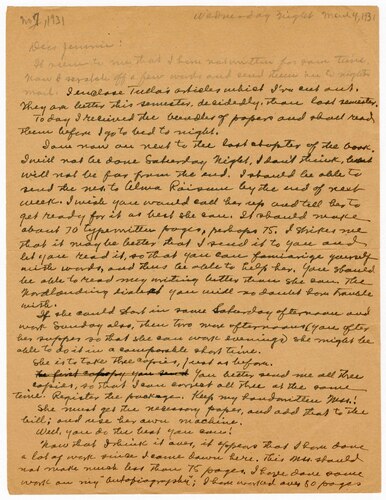 Wednesday Night March 4, 1931
Dear Jennie:
It seems to me that I have not written for some time.
Now I scrabble off a few words and send them in to night's
mail. I enclose Tulla's articles which I've cut out.
They are better this semester, decidedly, than last semester.
Today I received the bundle of papers and shall read
them before I go to bed to night.
I am now on next to the last chapter of the book.
I will not be done Saturday Night, I don't think, but
will not be far from the end. I should be able to
send the ms. to Alma by the end of next
week. I wish you would call her up and tell her to
get ready for it as best she can. It should make
about 70 typewritten pages, perhaps 75. It strikes me
that it may be better that I send it to you and
let you read it, so that you can familiarize yourself
with words, and thus be able to help her. You should
be able to read my writing better than she can. The
you will no doubt have trouble
with.
If she could start in some Saturday afternoon and
work Sunday also, then two more afternoons (you after
her supper so that she can work evenings) she might be
able to do it in a comparable short time.
She is to take three copies, just as before.
The first copy you send You better send me all three
copies, so that I can correct all three at the same
time. Register the package. Keep my handwritten Mss!
She must get the necessary paper, and add that to the
bill; and use her own machine.
Well, you do the best you can!
Now that I think it over, it appears that I have done
a lot of work since I came down here. This Mss should
not make much less than 75 pages. I have done some
work on my "Autobiography"; I have worked over 80 pages